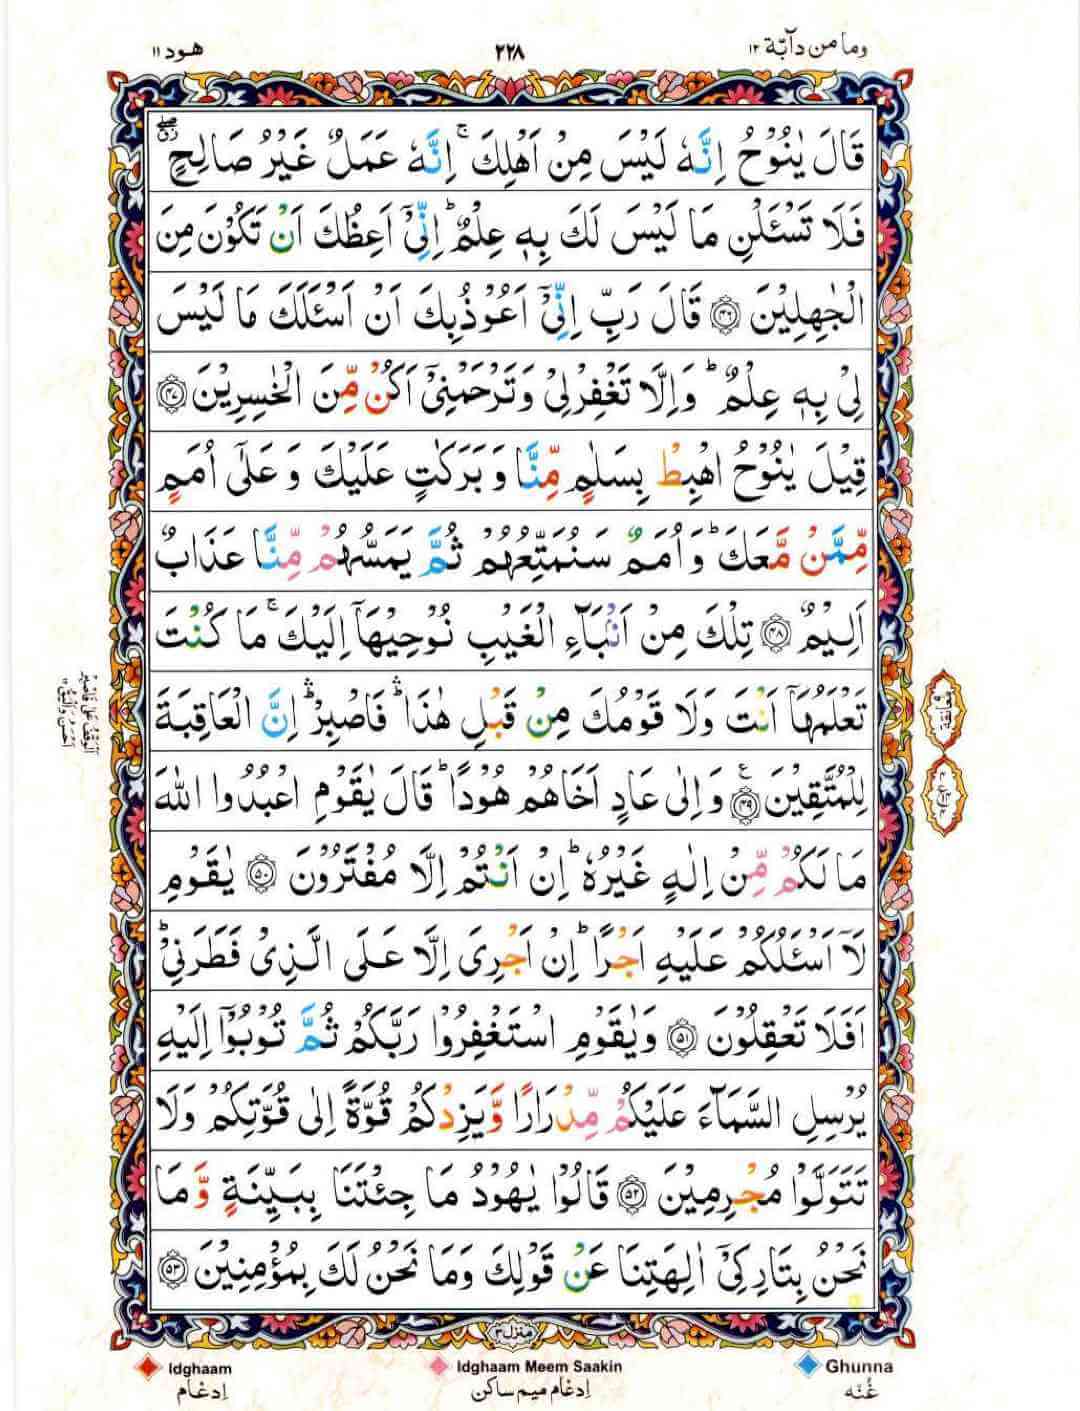 وما من دآبّة ١٢
٢٢٨
هود ١١
قَالَ يٰنُوْحُ اِنَّهٗ لَيْسَ مِنْ اَهْلِكَ ۚ اِنَّهٗ عَمَلٌ غَيْرُ صَالِحٍ
فَلَا تَسْـَٔلْنِ مَا لَيْسَ لَكَ بِهٖ عِلْمٌ ؕ اِنِّيْۤ اَعِظُكَ اَنْ تَكُوْنَ مِنَ
الْجٰهِلِيْنَ ۝۴۶ قَالَ رَبِّ اِنِّيْۤ اَعُوْذُبِكَ اَنْ اَسْـَٔلَكَ مَا لَيْسَ
لِيْ بِهٖ عِلْمٌ ؕ وَاِلَّا تَغْفِرْلِيْ وَتَرْحَمْنِيْۤ اَكُنْ مِّنَ الْخٰسِرِيْنَ ۝۴۷
قِيْلَ يٰنُوْحُ اهْبِطْ بِسَلٰمٍ مِّنَّا وَبَرَكٰتٍ عَلَيْكَ وَعَلٰۤى اُمَمٍ
مِّمَّنْ مَّعَكَ ؕ وَاُمَمٌ سَنُمَتِّعُهُمْ ثُمَّ يَمَسُّهُمْ مِّنَّا عَذَابٌ
اَلِيْمٌ ۝۴۸ تِلْكَ مِنْ اَنْۢبَآءِ الْغَيْبِ نُوْحِيْهَاۤ اِلَيْكَ ۚ مَا كُنْتَ
تَعْلَمُهَاۤ اَنْتَ وَلَا قَوْمُكَ مِنْ قَبْلِ هٰذَا ۛ فَاصْبِرْ ۛ اِنَّ الْعَاقِبَةَ
لِلْمُتَّقِيْنَ ۝۴۹ وَاِلٰى عَادٍ اَخَاهُمْ هُوْدًا ؕ قَالَ يٰقَوْمِ اعْبُدُوا اللّٰهَ
مَا لَكُمْ مِّنْ اِلٰهٍ غَيْرُهٗ ؕ اِنْ اَنْتُمْ اِلَّا مُفْتَرُوْنَ ۝۵۰ يٰقَوْمِ
لَاۤ اَسْـَٔلُكُمْ عَلَيْهِ اَجْرًا ؕ اِنْ اَجْرِيَ اِلَّا عَلَى الَّذِيْ فَطَرَنِيْ ؕ
اَفَلَا تَعْقِلُوْنَ ۝۵۱ وَيٰقَوْمِ اسْتَغْفِرُوْا رَبَّكُمْ ثُمَّ تُوْبُوْۤا اِلَيْهِ
يُرْسِلِ السَّمَآءَ عَلَيْكُمْ مِّدْرَارًا وَّيَزِدْكُمْ قُوَّةً اِلٰى قُوَّتِكُمْ وَلَا
تَتَوَلَّوْا مُجْرِمِيْنَ ۝۵۲ قَالُوْا يٰهُوْدُ مَا جِئْتَنَا بِبَيِّنَةٍ وَّمَا
نَحْنُ بِتَارِكِيْۤ اٰلِهَتِنَا عَنْ قَوْلِكَ وَمَا نَحْنُ لَكَ بِمُؤْمِنِيْنَ ۝۵۳
منزل ٣
Idghaam
Idghaam Meem Saakin
Ghunna
اِدغام
اِدغام ميم ساكن
غُنّه